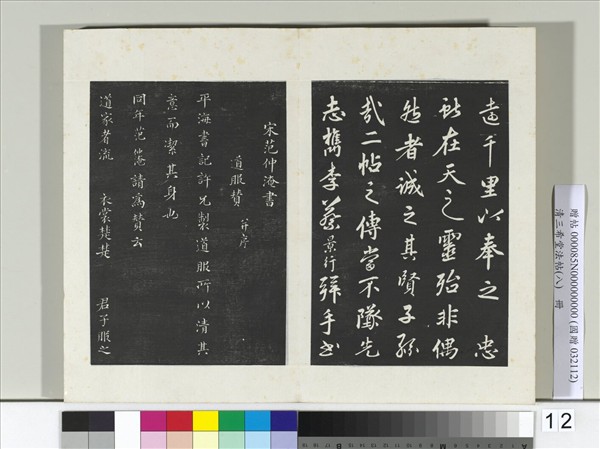 遠千里以奉之忠
献在天之靈殆非偶
然者誠之其賢子孫
哉二帖之傳當不墜先
志雋李蔡景行拜手書
宋范仲淹書
道服贊 并序
平海書記許兄製道服所以清其
意而潔其身也
同年范仲淹請為贊云
道家者流 衣裳楚楚 君子服之
贈帖 000085N000000000 (國贈 032112)
清三希堂法帖(八) 冊
12